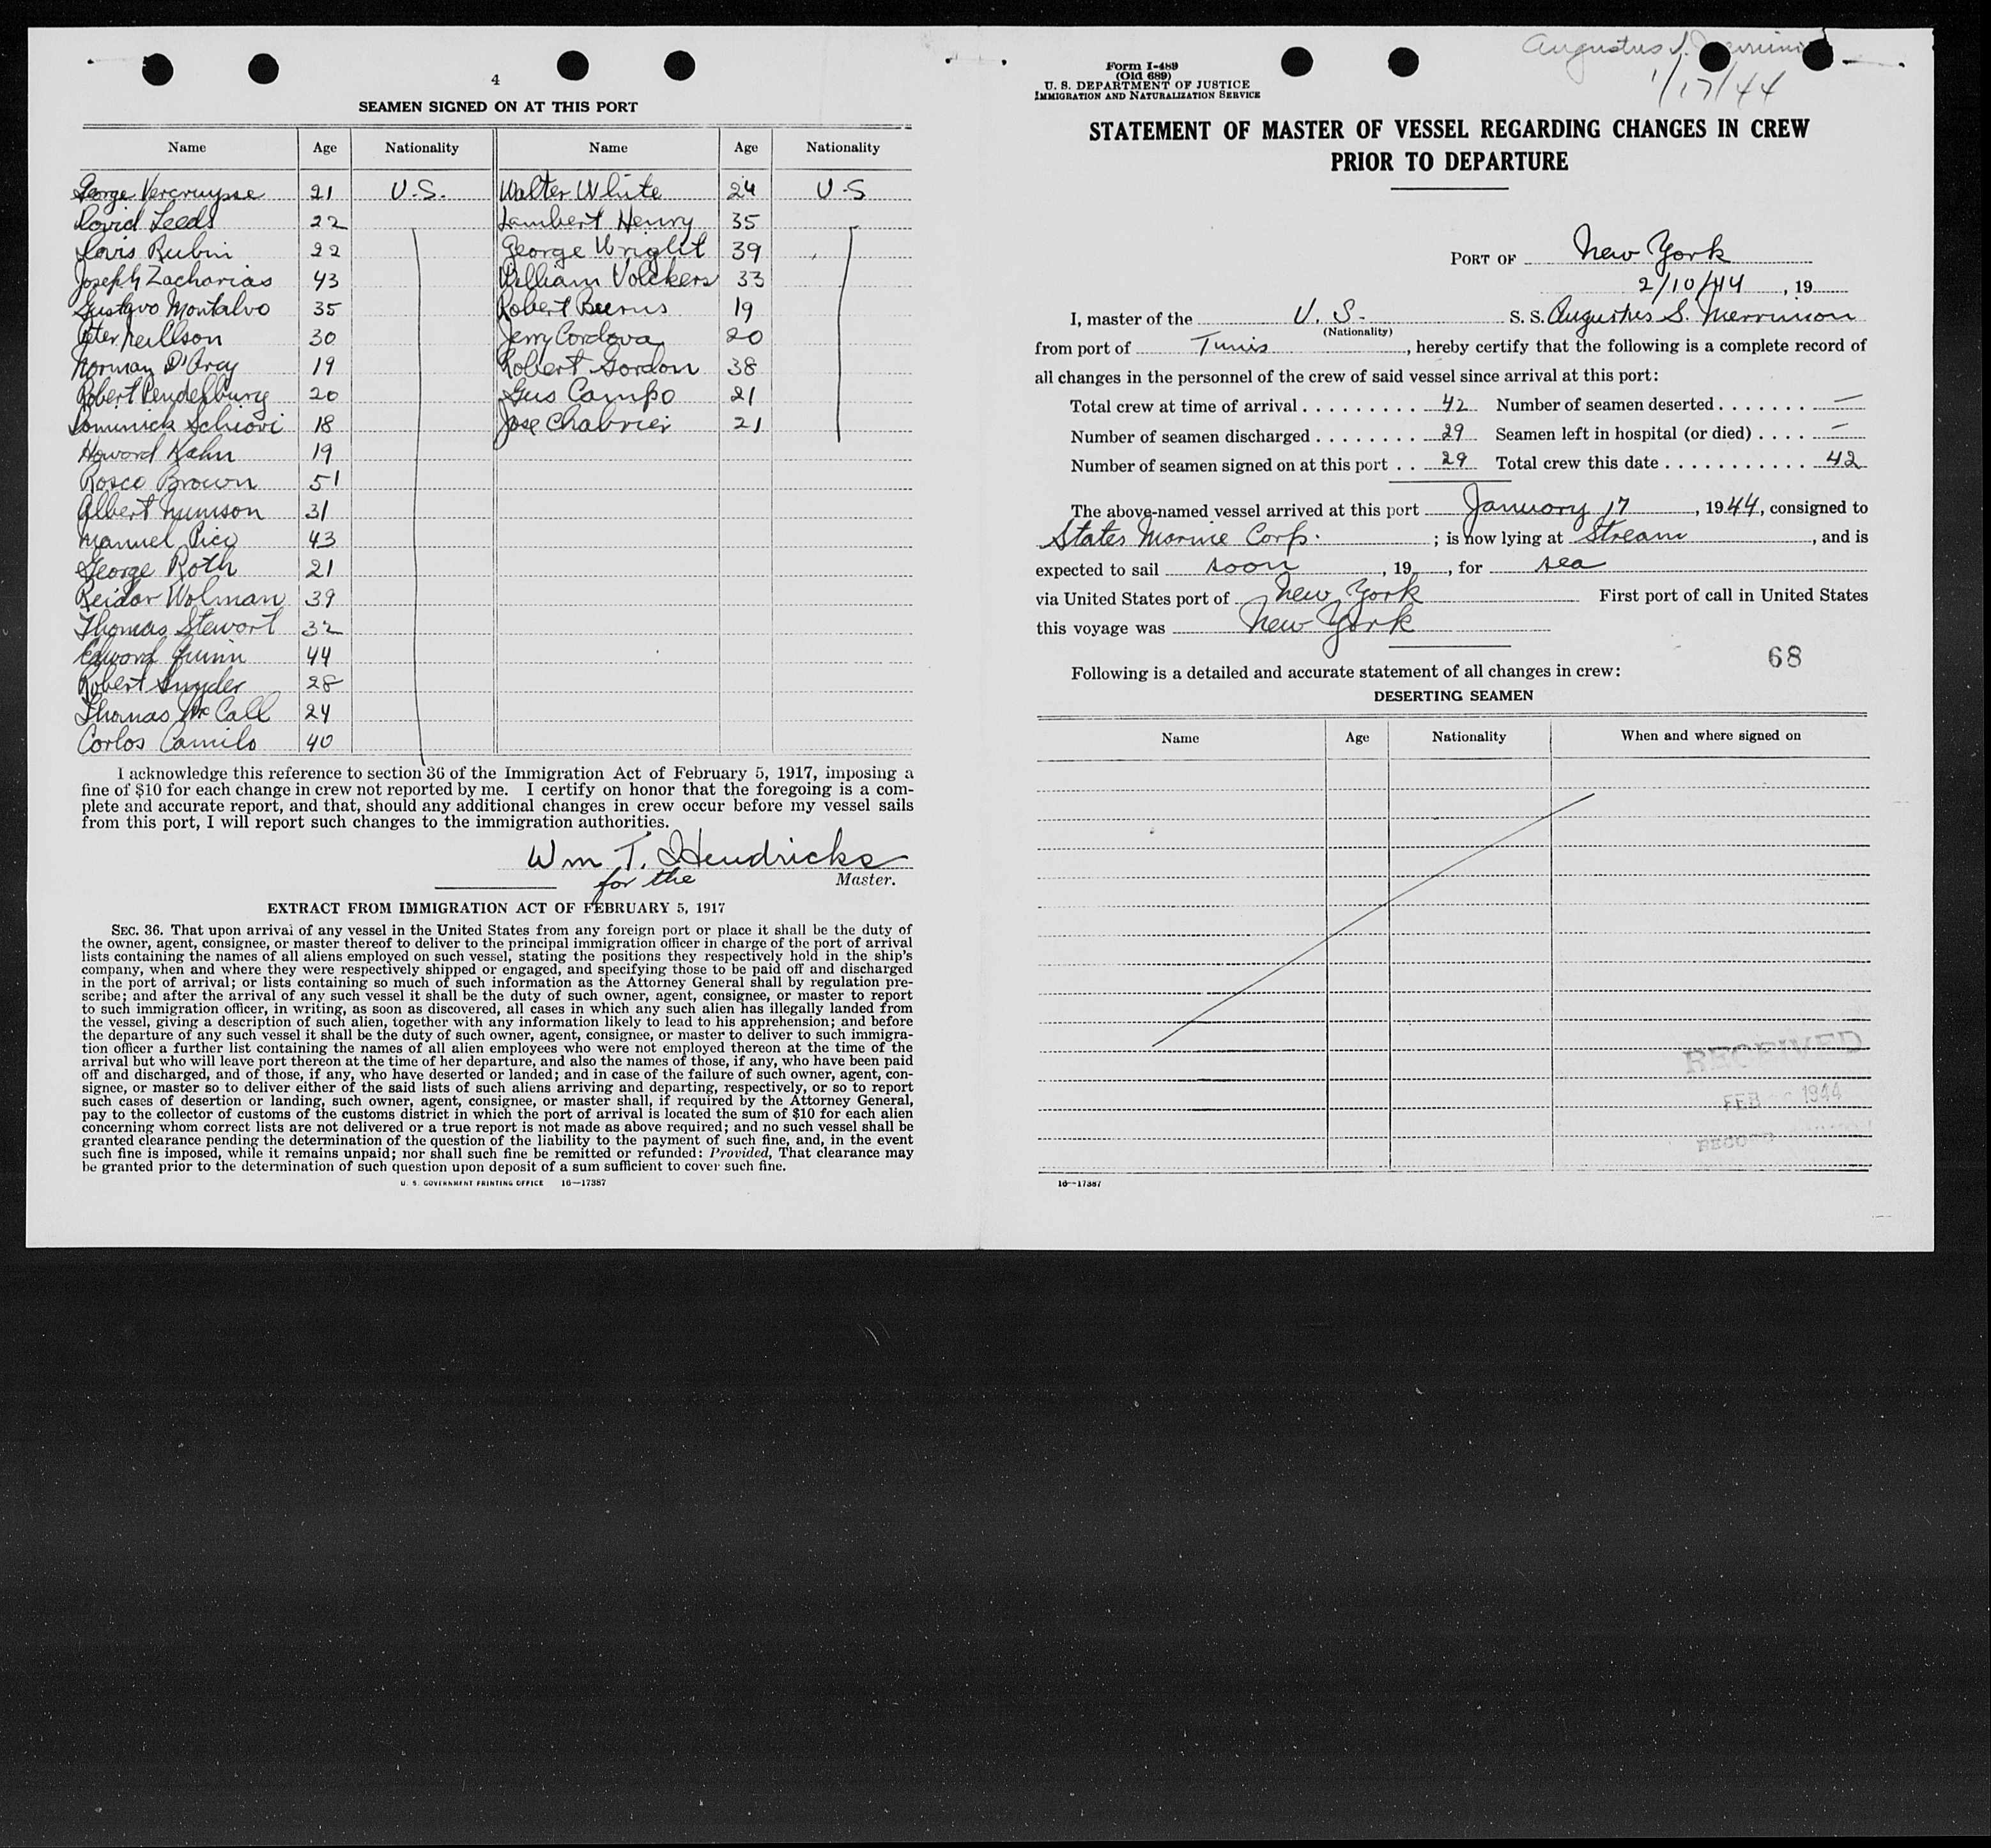 4
SEAMEN SIGNED ON AT THIS PORT
Name Age Nationality Name Age Nationality
George Vercruysse 21 U.S. Walter White 24 U.S
David Leeds 22 Lambert Henry 35
Louis Rubin 22 George Wright 39
Joseph Zacharias 43 William Volckers 33
Gustavo Montalvo 35 Robert Burns 19
Peter Neillson 30 Jerry Cordova 20
Norman D'Arcy 19 Robert Gordon 38
Robert Pendelbury 20 Gus Campo 21
Dominick Schiavi 18 Jose Chabrier 21
Howard Kahn 19
Rosco Brown 51
Albert Munson 31
Manuel Pico 43
George Roth 21
Reidar Wolman 39
Thomas Stewart 32
Edward Quinn 44
Robert Snyder 28
Thomas McCall 24
Carlos Camilo 40
I acknowledge this reference to section 36 of the Immigration Act of February 5, 1917, imposing a
fine of $10 for each change in crew not reported by me. I certify on honor that the foregoing is a com-
plete and accurate report, and that, should any additional changes in crew occur before my vessel sails
from this port, I will report such changes to the immigration authorities.
Wm T. Hendricks
for the Master.
EXTRACT FROM IMMIGRATION ACT OF FEBRUARY 5, 1917
SEC. 36. That upon arrival of any vessel in the United States from any foreign port or place it shall be the duty of
the owner, agent, consignee, or master thereof to deliver to the principal immigration officer in charge of the port of arrival
lists containing the names of all aliens employed on such vessel, stating the positions they respectively hold in the ship's
company, when and where they were respectively shipped or engaged, and specifying those to be paid off and discharged
in the port of arrival; or lists containing so much of such information as the Attorney General shall by regulation pre-
scribe; and after the arrival of any such vessel it shall be the duty of such owner, agent, consignee, or master to report
to such immigration officer, in writing, as soon as discovered, all cases in which any such alien has illegally landed from
the vessel, giving a description of such alien, together with any information likely to lead to his apprehension; and before
the departure of any such vessel it shall be the duty of such owner, agent, consignee, or master to deliver to such immigra-
tion officer a further list containing the names of all alien employees who were not employed thereon at the time of the
arrival but who will leave port thereon at the time of her departure, and also the names of those, if any, who have been paid
off and discharged, and of those, if any, who have deserted or landed; and in case of the failure of such owner, agent, con-
signee, or master so to deliver either of the said lists of such aliens arriving and departing, respectively, or so to report
such cases of desertion or landing, such owner, agent, consignee, or master shall, if required by the Attorney General,
pay to the collector of customs of the customs district in which the port of arrival is located the sum of $10 for each alien
concerning whom correct lists are not delivered or a true report is not made as above required; and no such vessel shall be
granted clearance pending the determination of the question of the liability to the payment of such fine, and, in the event
such fine is imposed, while it remains unpaid; nor shall such fine be remitted or refunded: Provided, That clearance may
be granted prior to the determination of such question upon deposit of a sum sufficient to cover such fine.
U. S. GOVERNMENT PRINTING OFFICE 16—17387
Augustus S.
1/17/44
Form I-489
(Old 689)
U. S. DEPARTMENT OF JUSTICE
IMMIGRATION AND NATURALIZATION SERVICE
STATEMENT OF MASTER OF VESSEL REGARDING CHANGES IN CREW
PRIOR TO DEPARTURE
PORT OF New York
2/10/44, 19
I, master of the U. S. S. S. Augustus S. Merrimon
(Nationality)
from port of Tunis, hereby certify that the following is a complete record of
all changes in the personnel of the crew of said vessel since arrival at this port:
Total crew at time of arrival . . . . . . . . . 42 Number of seamen deserted . . . . . . . —
Number of seamen discharged . . . . . . . . 29 Seamen left in hospital (or died) . . . . —
Number of seamen signed on at this port . . 29 Total crew this date . . . . . . . . . . . 42
The above-named vessel arrived at this port January 17, 1944, consigned to
States Marine Corp. ; is now lying at Stream, and is
expected to sail soon, 19, for sea
via United States port of New York First port of call in United States
this voyage was New York
68
Following is a detailed and accurate statement of all changes in crew:
DESERTING SEAMEN
Name Age Nationality When and where signed on
RECEIVED
FEB 1944
RECORD
16—17387